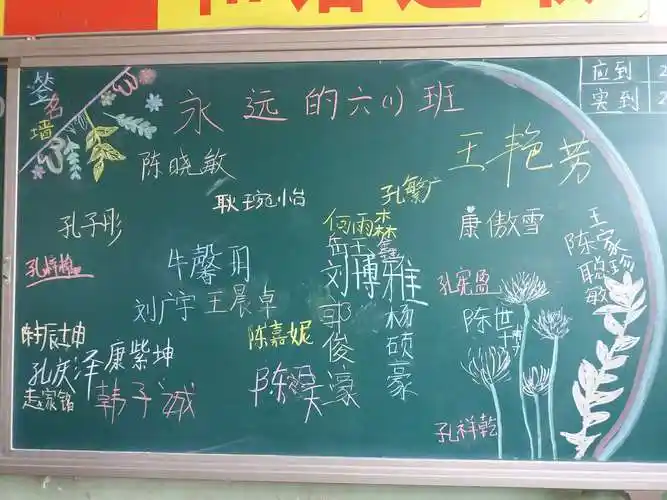 签名墙
应到 2
实到 2
永远的六(1)班
陈晓敏
王艳芳
耿琬怡
孔繁广
孔子彤
何雨森
康傲雪
王家珍
陈聪敏
岳玉鑫
牛馨玥
刘博雅
孔宪盈
刘广宇
王晨卓
郭俊濠
杨硕豪
陈世博
陈嘉妮
康紫坤
孔庆泽
赵家铭
韩子诚
孔祥乾